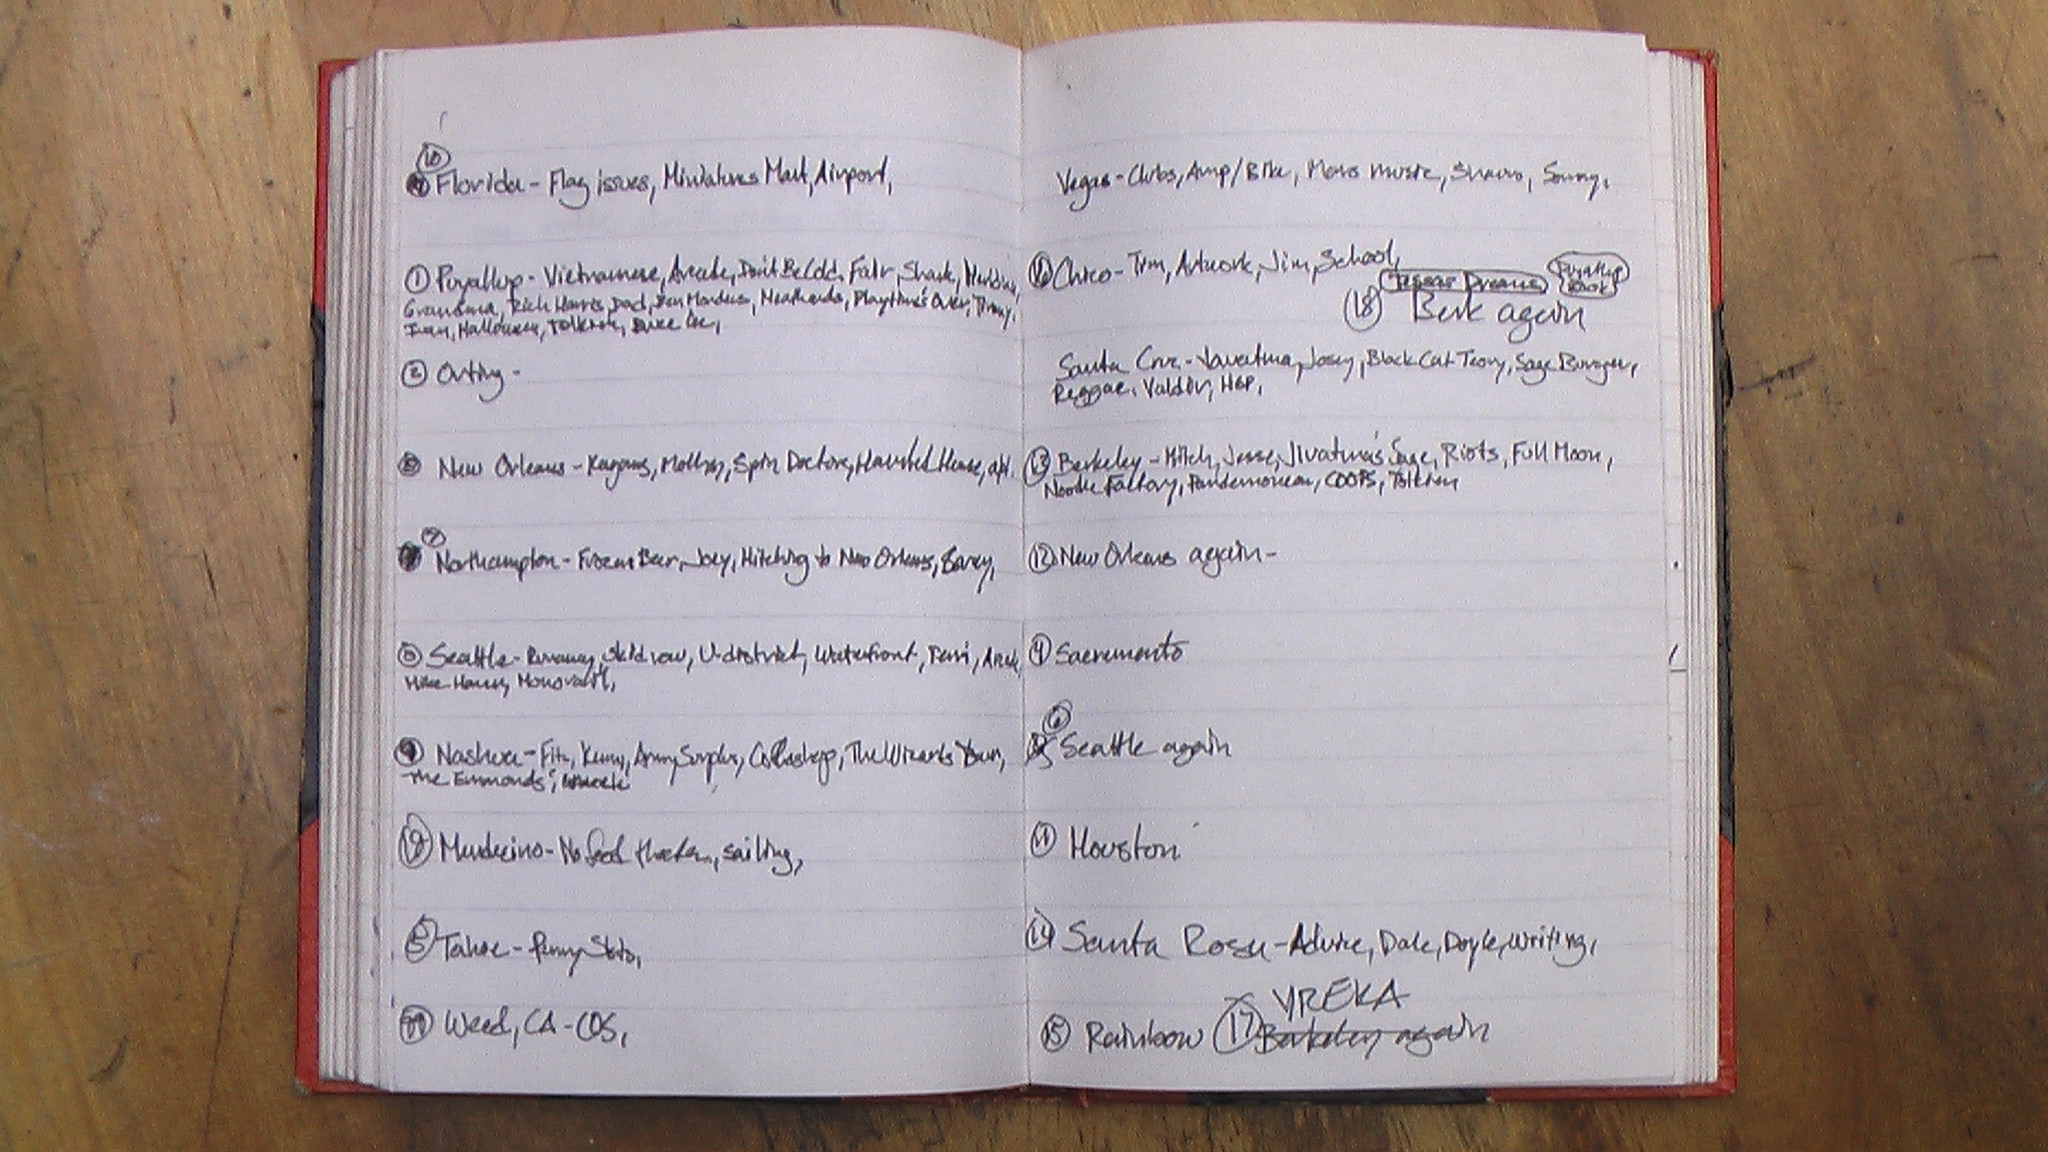 10
Florida - Flag issues, Miniatures Mart, Airport,
1 Puyallup - Vietnamese, Arcade, Don't Be Cold, Fair, Shark,
Grandma, Rich Harris, Dad, Ben Manders, Meatheads, Playtime's Over, Timmy,
Ivan, Halloween, Tolkien,
2 Orting -
8 New Orleans - Kagans, Mothers, Spin Doctors, Haunted House, apt.
7
Northampton - Frozen Beer, Joey, Hitching to New Orleans,
3 Seattle - Runaway, Skid row, U-district, Waterfront, Terri,
9 Nashua - Fitz, Kenny, Army Surplus, Coffeeshop, The Wizards
The Emmonds',
19 Mendocino - No food, sailing,
5 Tahoe - Penny Slots,
Weed, CA - COS,
Vegas - Clubs, Amp/Bike, Mars music, Shawn, Sonny,
16 Chico - Tim, Artwork, Jim, School,
Dreams
Puyallup Book
18 Berk again
Santa Cruz - Jivatma, Josey, Black Cat Teory, Sage Burger,
Reggae, Valdir, H&P,
13 Berkeley - Mitch, Jesse, Jivatma's Sage, Riots, Full Moon,
Noodle Factory, Pandemonium, COOPS, Tolkien
12 New Orleans again -
4 Sacramento
6
Seattle again
11 Houston
14 Santa Rosa - Advice, Dale, Doyle, writing,
YREKA
15 Rainbow 17 Berkeley again